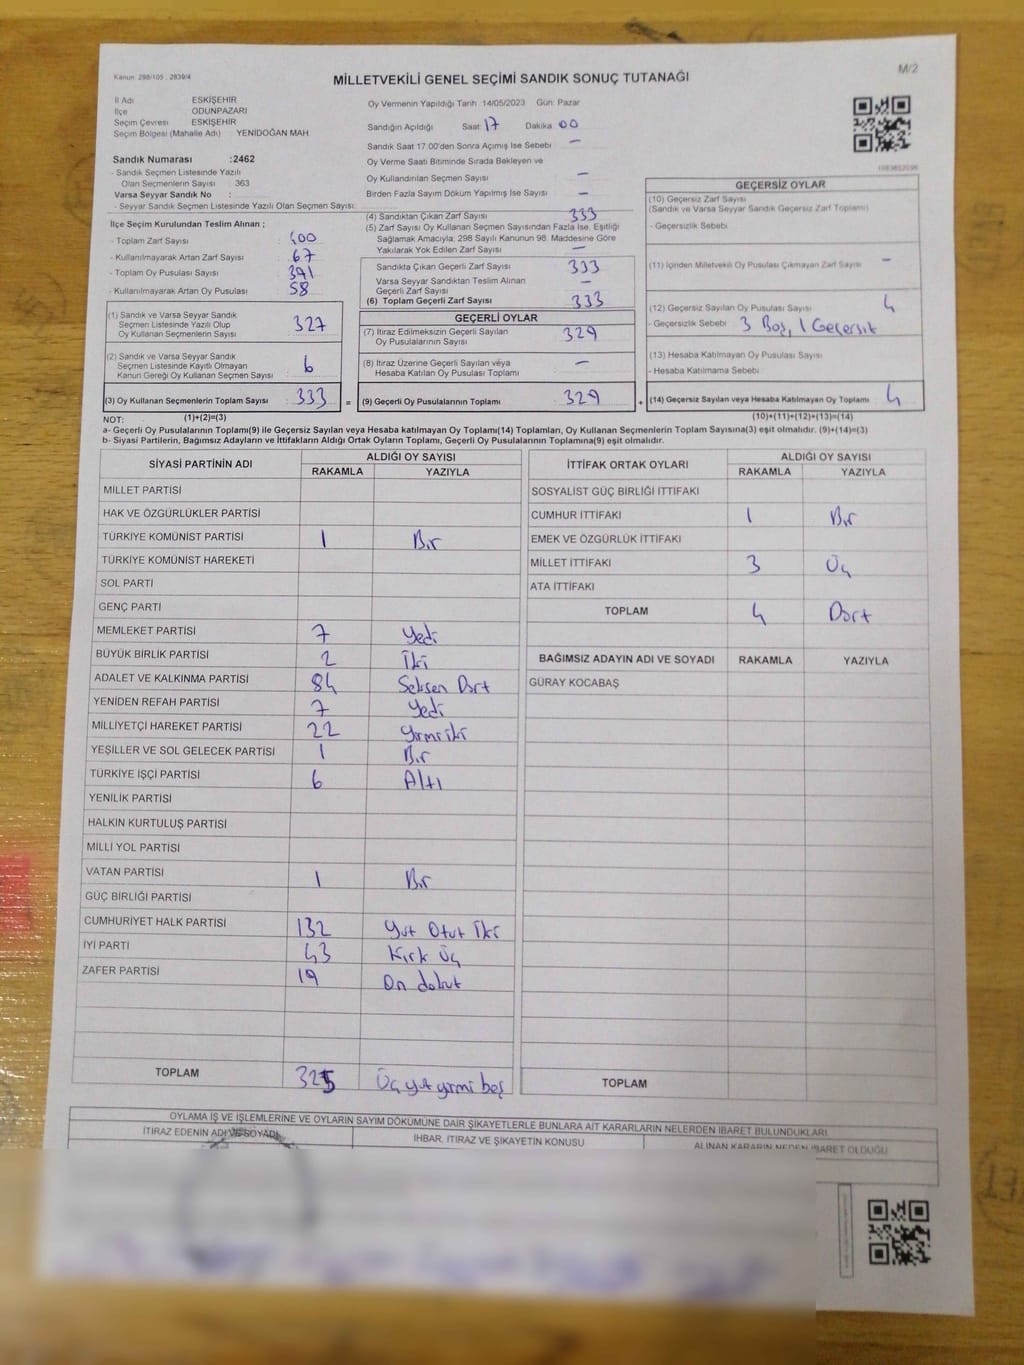 Kanun: 298/105 , 2839/4
MİLLETVEKİLİ GENEL SEÇİMİ SANDIK SONUÇ TUTANAĞI
M/2
İl Adı ESKİŞEHİR
İlçe ODUNPAZARI
Seçim Çevresi ESKİŞEHİR
Seçim Bölgesi (Mahalle Adı) YENİDOĞAN MAH
Sandık Numarası :2462
- Sandık Seçmen Listesinde Yazılı
Olan Seçmenlerin Sayısı 363
Varsa Seyyar Sandık No :
- Seyyar Sandık Seçmen Listesinde Yazılı Olan Seçmen Sayısı:
Oy Vermenin Yapıldığı Tarih :14/05/2023 Gün: Pazar
Sandığın Açıldığı Saat 17 Dakika 00
Sandık Saat 17:00'den Sonra Açımış İse Sebebi —
Oy Verme Saati Bitiminde Sırada Bekleyen ve
Oy Kullandırılan Seçmen Sayısı —
Birden Fazla Sayım Döküm Yapılmış İse Sayısı —
İlçe Seçim Kurulundan Teslim Alınan ;
- Toplam Zarf Sayısı : 400
- Kullanılmayarak Artan Zarf Sayısı : 67
- Toplam Oy Pusulası Sayısı : 391
- Kullanılmayarak Artan Oy Pusulası : 58
(1) Sandık ve Varsa Seyyar Sandık
Seçmen Listesinde Yazılı Olup
Oy Kullanan Seçmenlerin Sayısı 327
(2) Sandık ve Varsa Seyyar Sandık
Seçmen Listesinde Kayıtlı Olmayan
Kanun Gereği Oy Kullanan Seçmen Sayısı 6
(3) Oy Kullanan Seçmenlerin Toplam Sayısı : 333 =
(4) Sandıktan Çıkan Zarf Sayısı 333
(5) Zarf Sayısı Oy Kullanan Seçmen Sayısından Fazla İse, Eşitliği
Sağlamak Amacıyla; 298 Sayılı Kanunun 98. Maddesine Göre
Yakılarak Yok Edilen Zarf Sayısı —
Sandıkta Çıkan Geçerli Zarf Sayısı 333
Varsa Seyyar Sandıktan Teslim Alınan
Geçerli Zarf Sayısı —
(6) Toplam Geçerli Zarf Sayısı 333
GEÇERLİ OYLAR
(7) İtiraz Edilmeksizin Geçerli Sayılan
Oy Pusulalarının Sayısı 329
(8) İtiraz Üzerine Geçerli Sayılan veya
Hesaba Katılan Oy Pusulası Toplamı —
(9) Geçerli Oy Pusulalarının Toplamı : 329 +
GEÇERSİZ OYLAR
(10) Geçersiz Zarf Sayısı
(Sandık ve Varsa Seyyar Sandık Geçersiz Zarf Toplamı)
- Geçersizlik Sebebi
(11) İçinden Milletvekili Oy Pusulası Çıkmayan Zarf Sayısı —
(12) Geçersiz Sayılan Oy Pusulası Sayısı 4
- Geçersizlik Sebebi 3 Boş, 1 Geçersiz
(13) Hesaba Katılmayan Oy Pusulası Sayısı
- Hesaba Katılmama Sebebi
(14) Geçersiz Sayılan veya Hesaba Katılmayan Oy Toplamı : 4
NOT: (1)+(2)=(3) (10)+(11)+(12)+(13)=(14)
a- Geçerli Oy Pusulalarının Toplamı(9) ile Geçersiz Sayılan veya Hesaba katılmayan Oy Toplamı(14) Toplamları, Oy Kullanan Seçmenlerin Toplam Sayısına(3) eşit olmalıdır. (9)+(14)=(3)
b- Siyasi Partilerin, Bağımsız Adayların ve İttifakların Aldığı Ortak Oyların Toplamı, Geçerli Oy Pusulalarının Toplamına(9) eşit olmalıdır.
SİYASİ PARTİNİN ADI ALDIĞI OY SAYISI
RAKAMLA YAZIYLA
MİLLET PARTİSİ
HAK VE ÖZGÜRLÜKLER PARTİSİ
TÜRKİYE KOMÜNİST PARTİSİ 1 Bir
TÜRKİYE KOMÜNİST HAREKETİ
SOL PARTİ
GENÇ PARTİ
MEMLEKET PARTİSİ 7 Yedi
BÜYÜK BİRLİK PARTİSİ 2 İki
ADALET VE KALKINMA PARTİSİ 84 Seksen Dört
YENİDEN REFAH PARTİSİ 7 Yedi
MİLLİYETÇİ HAREKET PARTİSİ 22 Yirmi iki
YEŞİLLER VE SOL GELECEK PARTİSİ 1 Bir
TÜRKİYE İŞÇİ PARTİSİ 6 Altı
YENİLİK PARTİSİ
HALKIN KURTULUŞ PARTİSİ
MİLLİ YOL PARTİSİ
VATAN PARTİSİ 1 Bir
GÜÇ BİRLİĞİ PARTİSİ
CUMHURİYET HALK PARTİSİ 132 Yüz Otuz İki
İYİ PARTİ 43 Kırk Üç
ZAFER PARTİSİ 19 On dokuz
TOPLAM 325 Üç yüz yirmi beş
İTTİFAK ORTAK OYLARI ALDIĞI OY SAYISI
RAKAMLA YAZIYLA
SOSYALİST GÜÇ BİRLİĞİ İTTİFAKI
CUMHUR İTTİFAKI 1 Bir
EMEK VE ÖZGÜRLÜK İTTİFAKI
MİLLET İTTİFAKI 3 Üç
ATA İTTİFAKI
TOPLAM 4 Dört
BAĞIMSIZ ADAYIN ADI VE SOYADI RAKAMLA YAZIYLA
GÜRAY KOCABAŞ
TOPLAM
OYLAMA İŞ VE İŞLEMLERİNE VE OYLARIN SAYIM DÖKÜMÜNE DAİR ŞİKAYETLERLE BUNLARA AİT KARARLARIN NELERDEN İBARET BULUNDUKLARI
İTİRAZ EDENİN ADI VE SOYADI İHBAR, İTİRAZ VE ŞİKAYETİN KONUSU ALINAN KARARIN NEDEN İBARET OLDUĞU